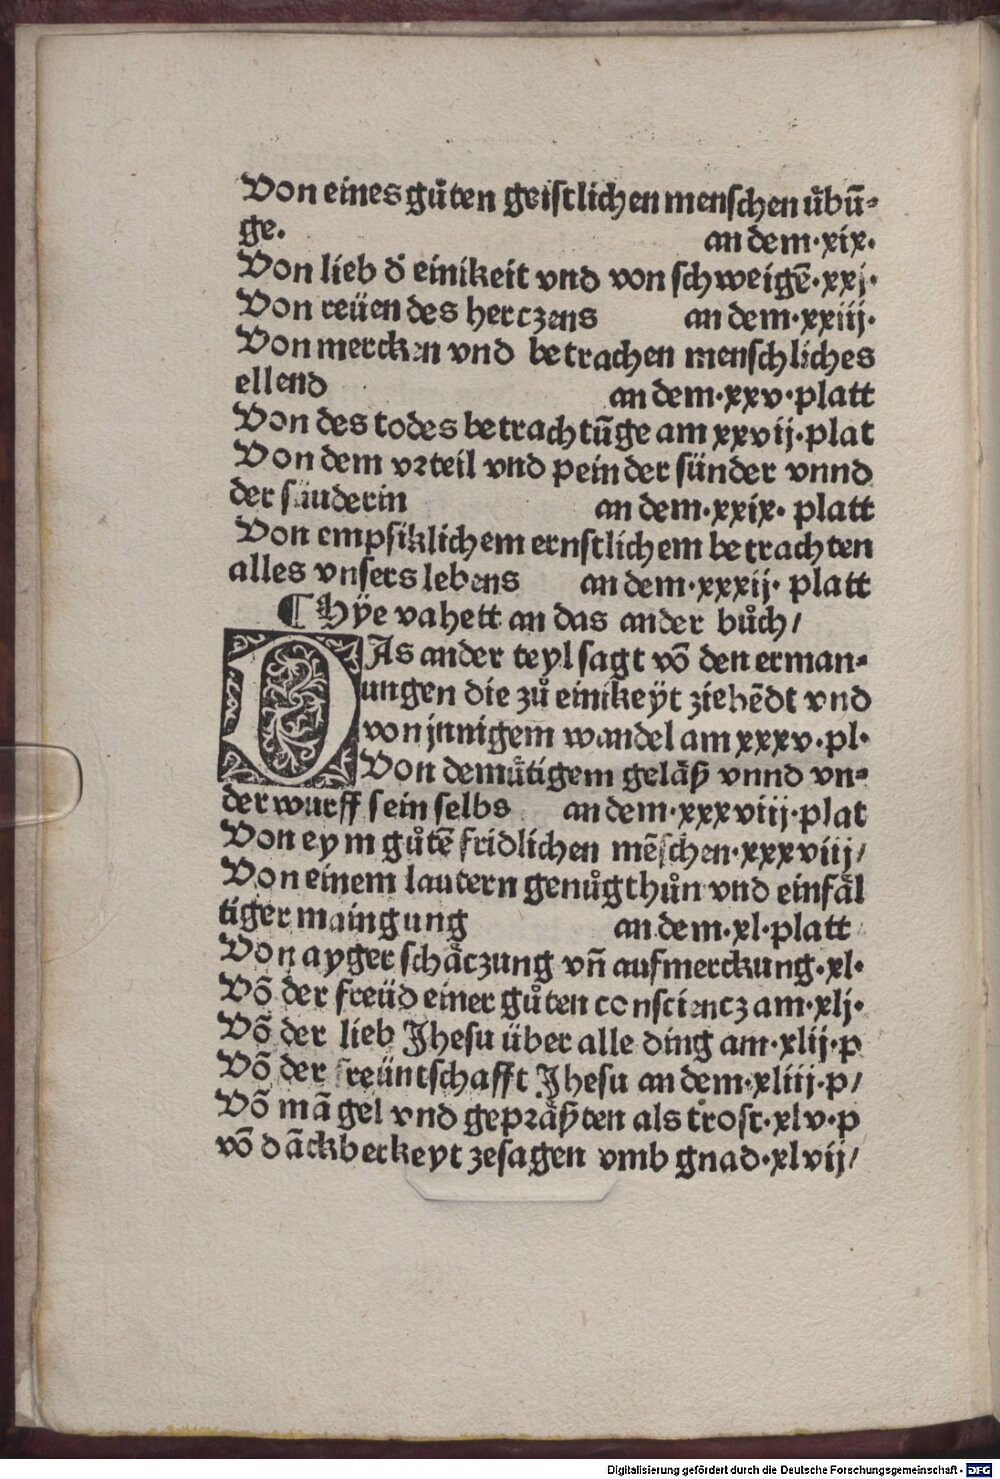 Von eines guͦten geistlichen menschen uͤbū⸗
ge. an dem·xix·
Von lieb d̕ einikeit vnd von schweigē·xxj·
Von reüen des herczens an dem·xxiij·
Von mercken vnd betrachen menschliches
ellend an dem·xxv·platt
Von des todes betrachtūge am xxvij·plat
Von dem vꝛteil vnd pein der sünder vnnd
der süuderin an dem·xxix· platt
Von empsiklichem ernstlichem betrachten
alles vnsers lebens an dem·xxxij· platt
¶ Hÿe vahett an das ander buͦch/
DAs ander teyl sagt vō den erman⸗
ungen die zuͦ einikeÿt ziehēdt vnd
von jnnigem wandel am xxxv·pl·
Von demuͤtigem gelaͤß vnnd vn⸗
der wurff sein selbs an dem·xxxviij·plat
Von eym guͦtē fridlichen mēschen·xxxviij/
Von einem lautern genuͦgthuͦn vnd einfaͤl
tiger maingung an dem·xl·platt
Von ayger schaͤczung vn̄ aufmerckung·xl·
Vō der freüd einer guͦten consciencz am·xlj·
Vō der lieb Jhesu über alle ding am·xlij·p
Vō der freüntschafft Jhesu an dem·xliij·p/
Vō māgel vnd gepꝛaͤßten als trost·xlv·p
vō dāckberkeyt zesagen vmb gnad·xlvij/
Digitalisierung gefördert durch die Deutsche Forschungsgemeinschaft - DFG